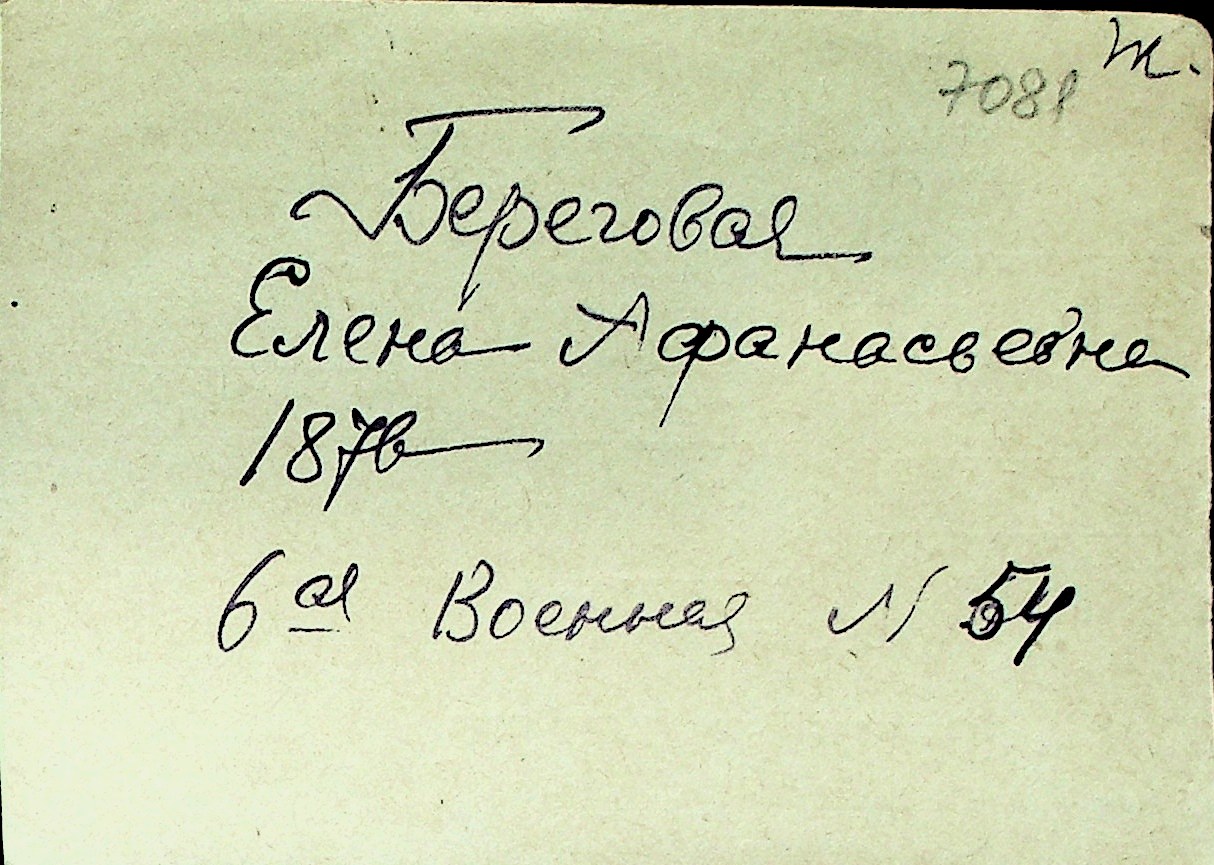 Ж.
7081
Береговая
Елена Афанасьевна
1876
6ая Военная N 54